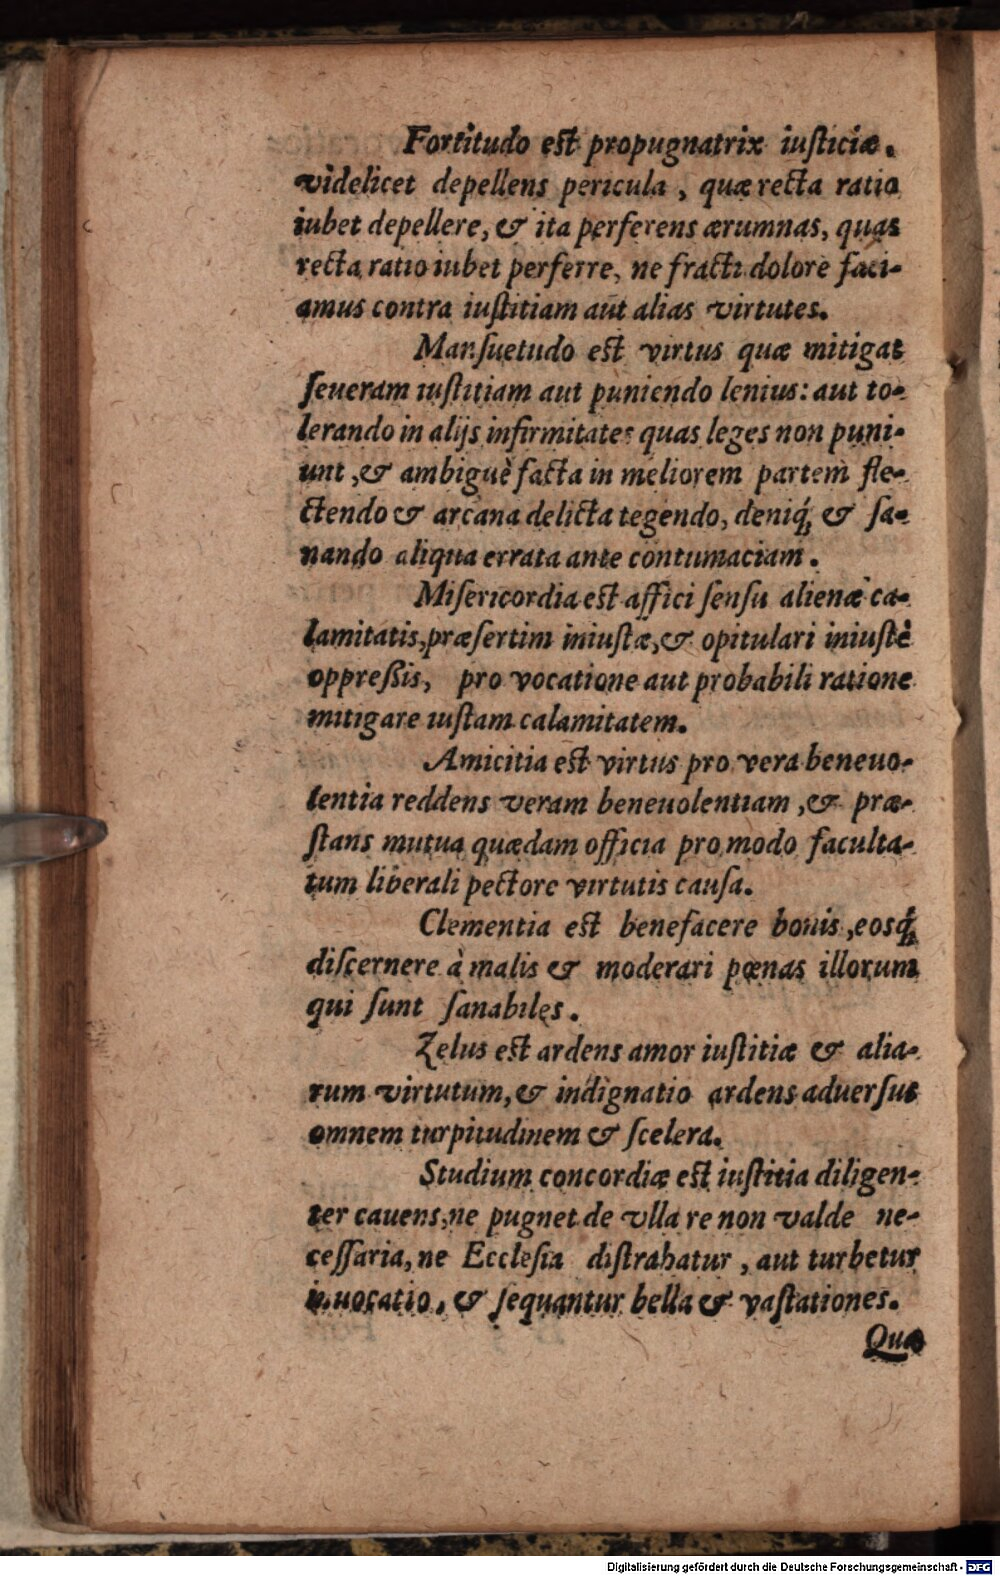 Fortitudo est propugnatrix iusticiæ.
videlicet depellens pericula, quæ recta ratio
iubet depellere, & ita perferens ærumnas, quas
recta ratio iubet perferre, ne fracti dolore faci-
amus contra iuſtitiam aut alias virtutes.
Manſuetudo est virtus quæ mitigat
ſeueram iuſtitiam aut puniendo lenius: aut to-
lerando in alijs infirmitates quas leges non puni-
unt, & ambiguè facta in meliorem partem fle-
ctendo & arcana delicta tegendo, deniq́ꝫ & ſa-
nando aliqua errata ante contumaciam.
Miſericordia est affici ſenſu alienæ ca-
lamitatis, præſertim iniuſtæ, & opitulari iniuſtè
oppreßis, pro vocatione aut probabili ratione
mitigare iuſtam calamitatem.
Amicitia est virtus pro vera beneuo-
lentia reddens veram beneuolentiam, & præ-
ſtans mutua quædam officia pro modo faculta-
tum liberali pectore virtutis cauſa.
Clementia est benefacere bonis, eosq́ꝫ
diſcernere à malis & moderari pœnas illorum
qui ſunt ſanabiles.
Zelus est ardens amor iuſtitiæ & alia-
rum virtutum, & indignatio ardens aduerſus
omnem turpitudinem & ſcelera.
Studium concordiæ est iuſtitia diligen-
ter cauens, ne pugnet de vlla re non valde ne-
ceſſaria, ne Eccleſia diſtrahatur, aut turbetur
inuocatio, & ſequantur bella & vaſtationes.
Quæ
Digitalisierung gefördert durch die Deutsche Forschungsgemeinschaft - DFG